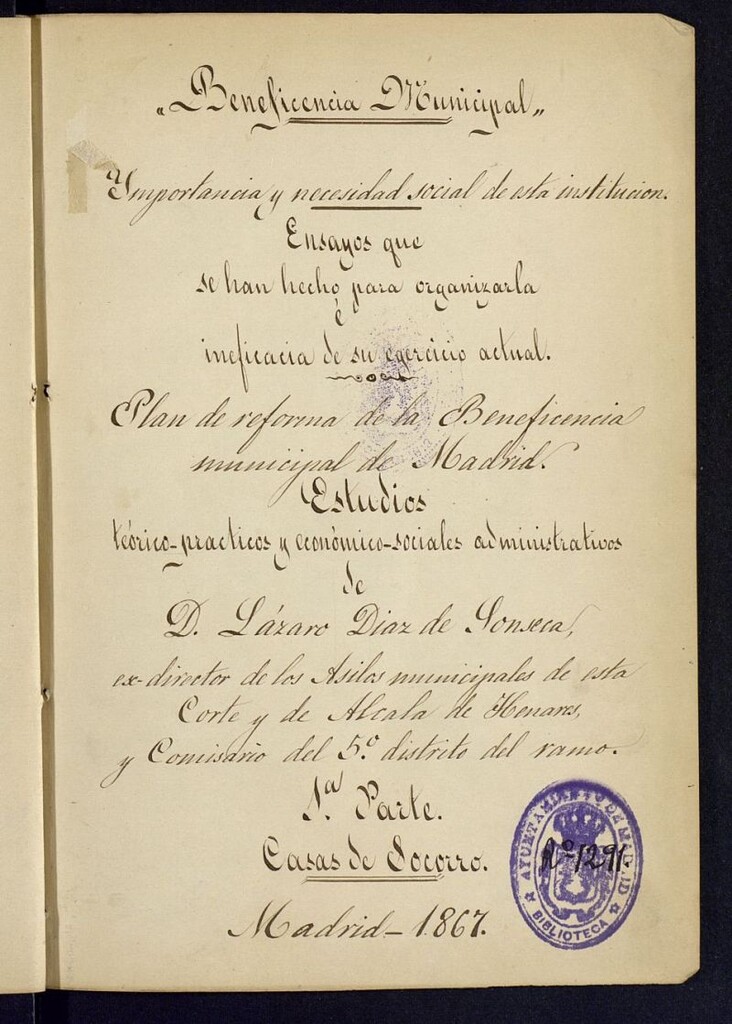 „Beneficencia Municipal„
Ymportancia y necesidad social de esta institucion.
Ensayos que
se han hecho para organizarla
é
ineficacia de su ejercicio actual.
Plan de reforma de la Beneficencia
municipal de Madrid.
Estudios
teórico-practicos y económico-sociales administrativos
de
D. Lázaro Diaz de Fonseca,
ex-director de los Asilos municipales de esta
Corte y de Alcala de Henares,
y Comisario del 5º. distrito del ramo.
1ª. Parte.
Casas de Socorro.
Madrid-1867.
AYUNTAMIENTO DE MADRID
Nº 1291.
BIBLIOTECA